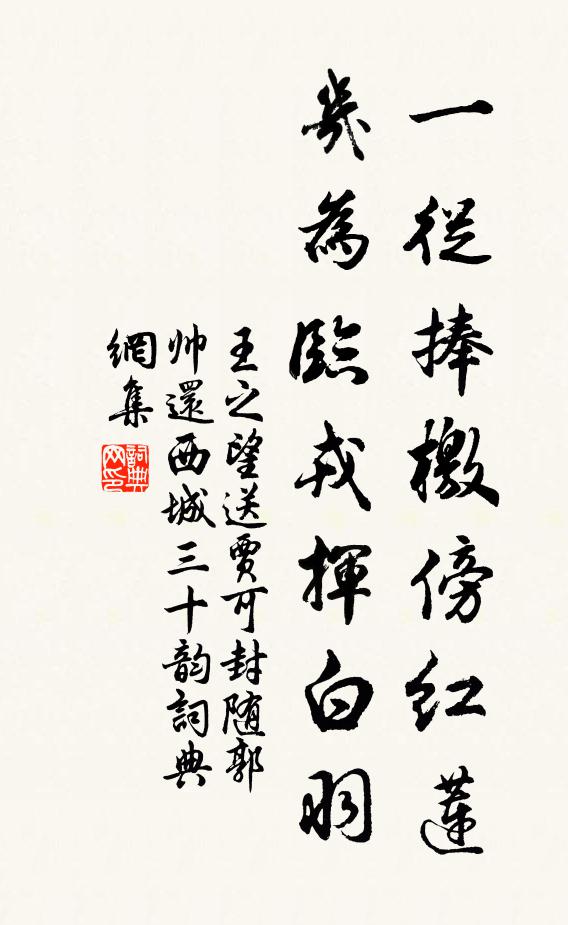 一從捧檄傍紅蓮
幾為臨戎揮白羽
王之望送賈可封随郭
帅還西城三十韵詞典
網集
詞典
网印